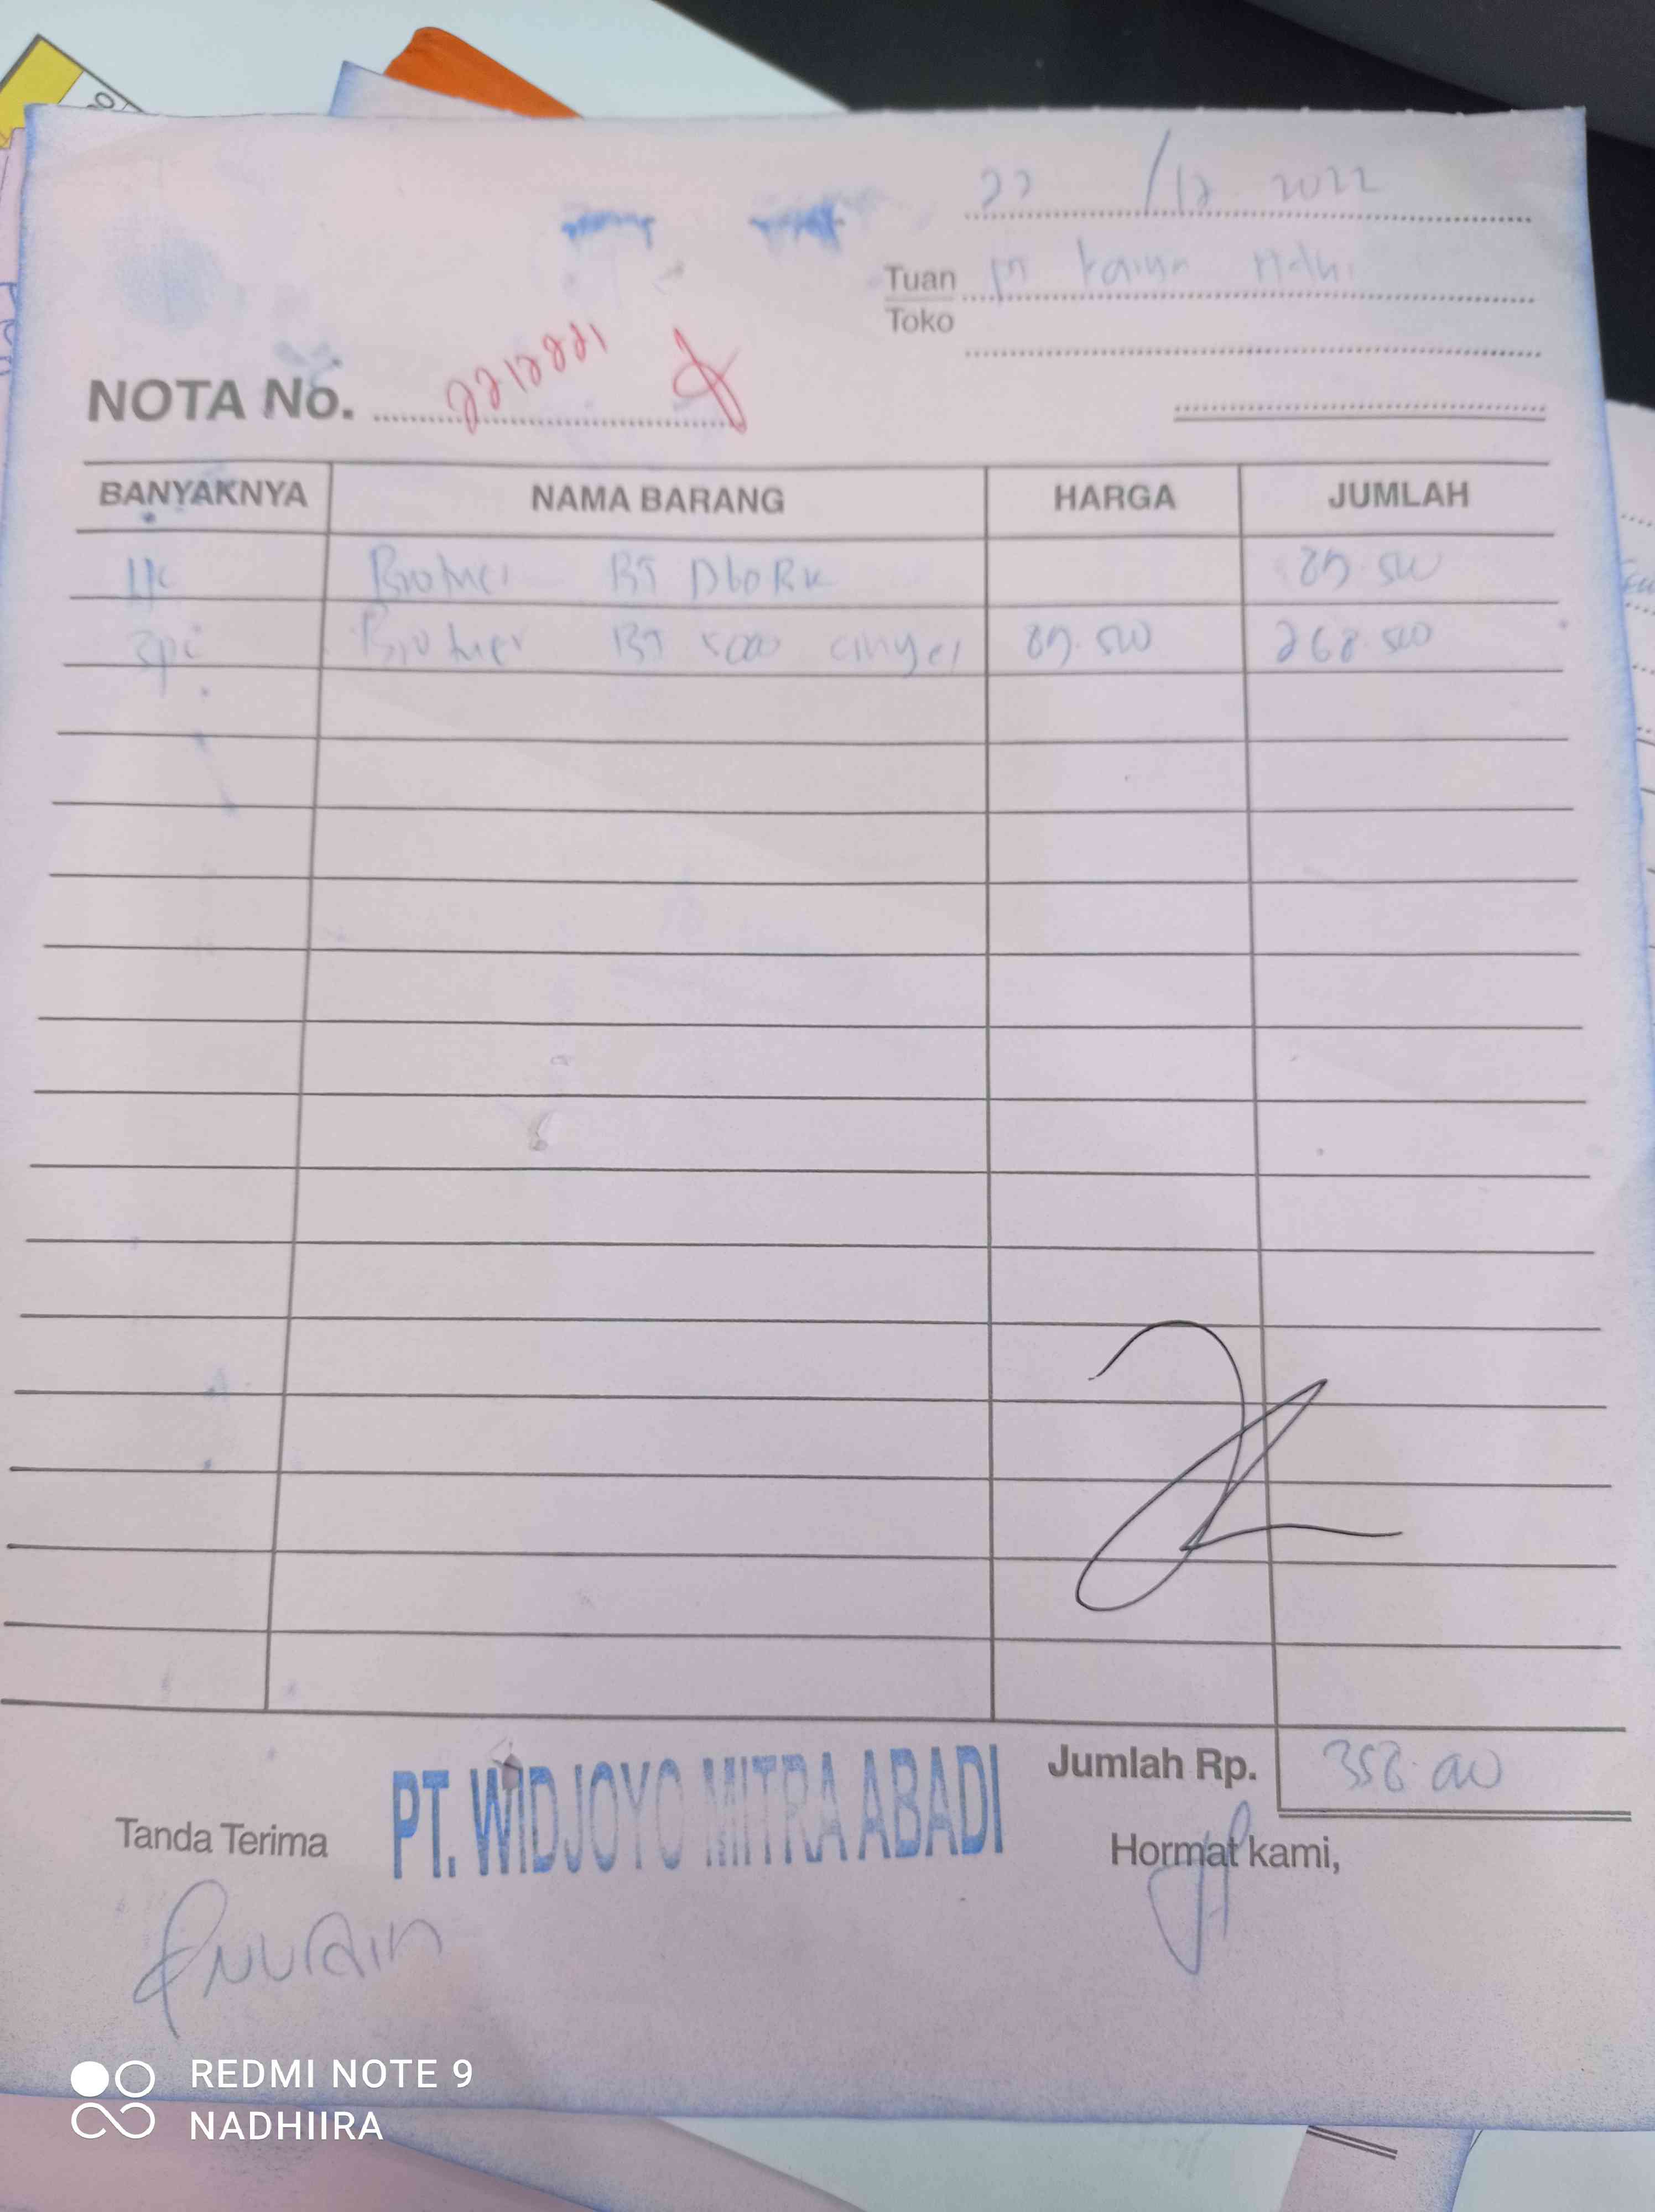 22 /12 2022
Tuan PT
Toko
NOTA No. 2212221
BANYAKNYA NAMA BARANG HARGA JUMLAH
Brother BT D60BK 89.500
3pc Brother BT 5000 89.500 268.500
Jumlah Rp. 358.000
PT. WIDJOYO MITRA ABADI
Tanda Terima Hormat kami,
REDMI NOTE 9
NADHIIRA